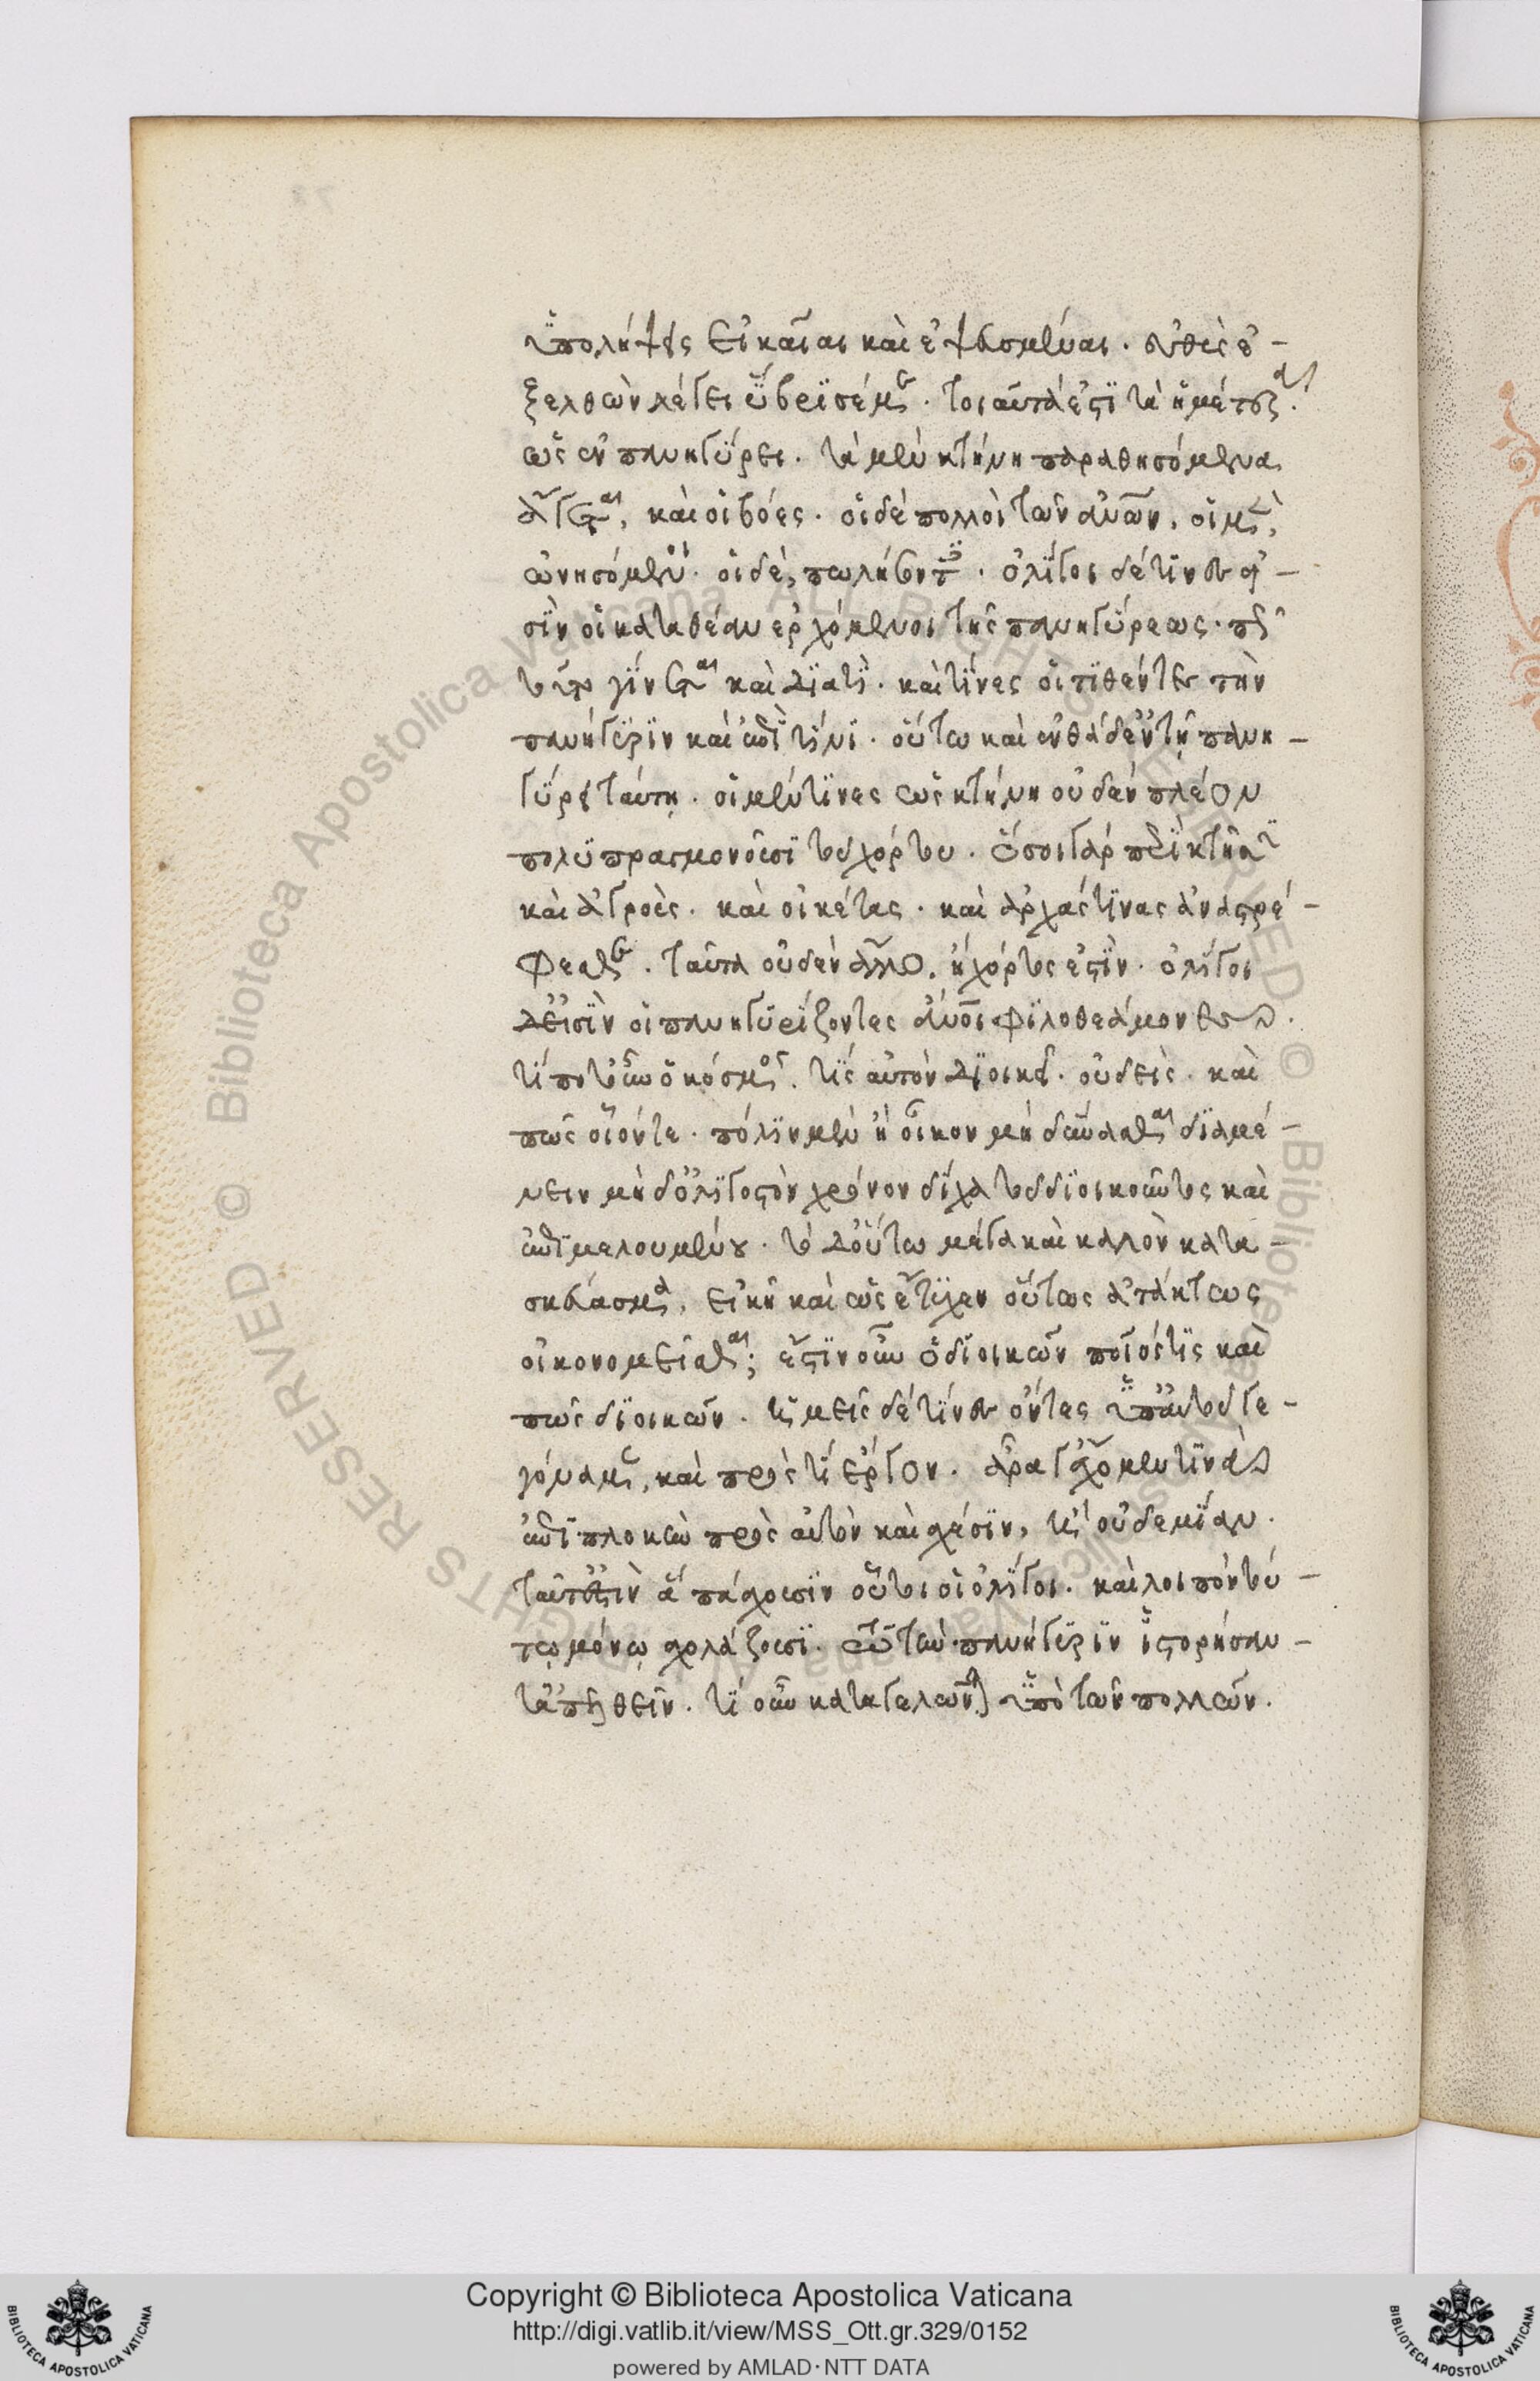 ὑπολήψεις εἰκαῖαι καὶ ἐψευσμέναι. εὐθὺς ἐ-
ξελθὼν λέγει ὕβρισέ με. τοιαῦτά ἐστι τὰ ἡμέτερα
ὡς ἐν πανηγύρει. τὰ μὲν κτήνη πραθησόμενα
ἄγεται, καὶ οἱ βόες. οἱ δὲ πολλοὶ τῶν ἀνων, οἱ μὲν,
ὠνησόμενοι. οἱ δὲ, πωλήσοντες. ὀλίγοι δέ τινές εἰ-
σιν οἱ κατα θέαν ερχόμενοι τῆς πανηγύρεως. πῶς
τοῦτο γίνεται καὶ διατί. καὶ τίνες οἱ τιθέντες τὴν
πανήγυριν καὶ ἐπὶ τίνι. οὕτω καὶ ενθάδ' ἐν τῇ πανη-
γύρει ταύτῃ. οἱ μέν τινες ὡς κτήνη οὐδὲν πλέον
πολυπραγμονοῦσι τοῦ χόρτου. ὅσοι γὰρ περὶ κτῆσιν
καὶ ἀγροὺς. καὶ οἰκέτας. καὶ ἀρχάς τινας ἀναστρέ-
φεσθε. ταῦτα οὐδὲν ἄλλο, ἢ χόρτος ἐστὶν. ὀλίγοι
δ' εἰσὶν οἱ πανηγυρίζοντες ἄνοι φιλοθεάμονες.
τί ποτ' οὖν ὁ κόσμος. τίς αὐτὸν διοικεῖ. οὐδεὶς. καὶ
πῶς οἷόν τε. πόλιν μὲν ἢ οἶκον μὴ δύνασθαι διαμέ-
νειν μηδ' ὀλιγοστὸν χρόνον δίχα τοῦ διοικοῦντος καὶ
ἐπιμελουμένου. τὸ δ' οὕτω μέγα καὶ καλὸν κατα-
σκεύασμα, εἰκῇ καὶ ὡς ἔτυχεν οὕτως ἀτάκτως
οἰκονομεῖσθαι; ἔστιν οὖν ὁ διοικῶν ποῖός τις καὶ
πῶς διοικῶν. ἡμεῖς δὲ τίνες ὄντες ὑπ' αὐτοῦ γε-
γόναμεν, καὶ πρὸς τί ἔργον. ἆρά γ' ἔχομεν τινὰ
ἐπιπλοκὴν πρὸς αὐτὸν καὶ σχέσιν, ἢ οὐδεμίαν.
ταῦτ' ἐστὶν ἃ πάσχουσιν οὗτοι οἱ ὀλίγοι. καὶ λοιπὸν τού-
τῳ μόνῳ σχολάζουσι. τῷ τὴν πανήγυριν ἱστορήσαν-
τας ἀπελθεῖν. τί οὖν καταγελῶνται ὑπὸ τῶν πολλῶν.
Copyright © Biblioteca Apostolica Vaticana
http://digi.vatlib.it/view/MSS_Ott.gr.329/0152
powered by AMLAD·NTT DATA